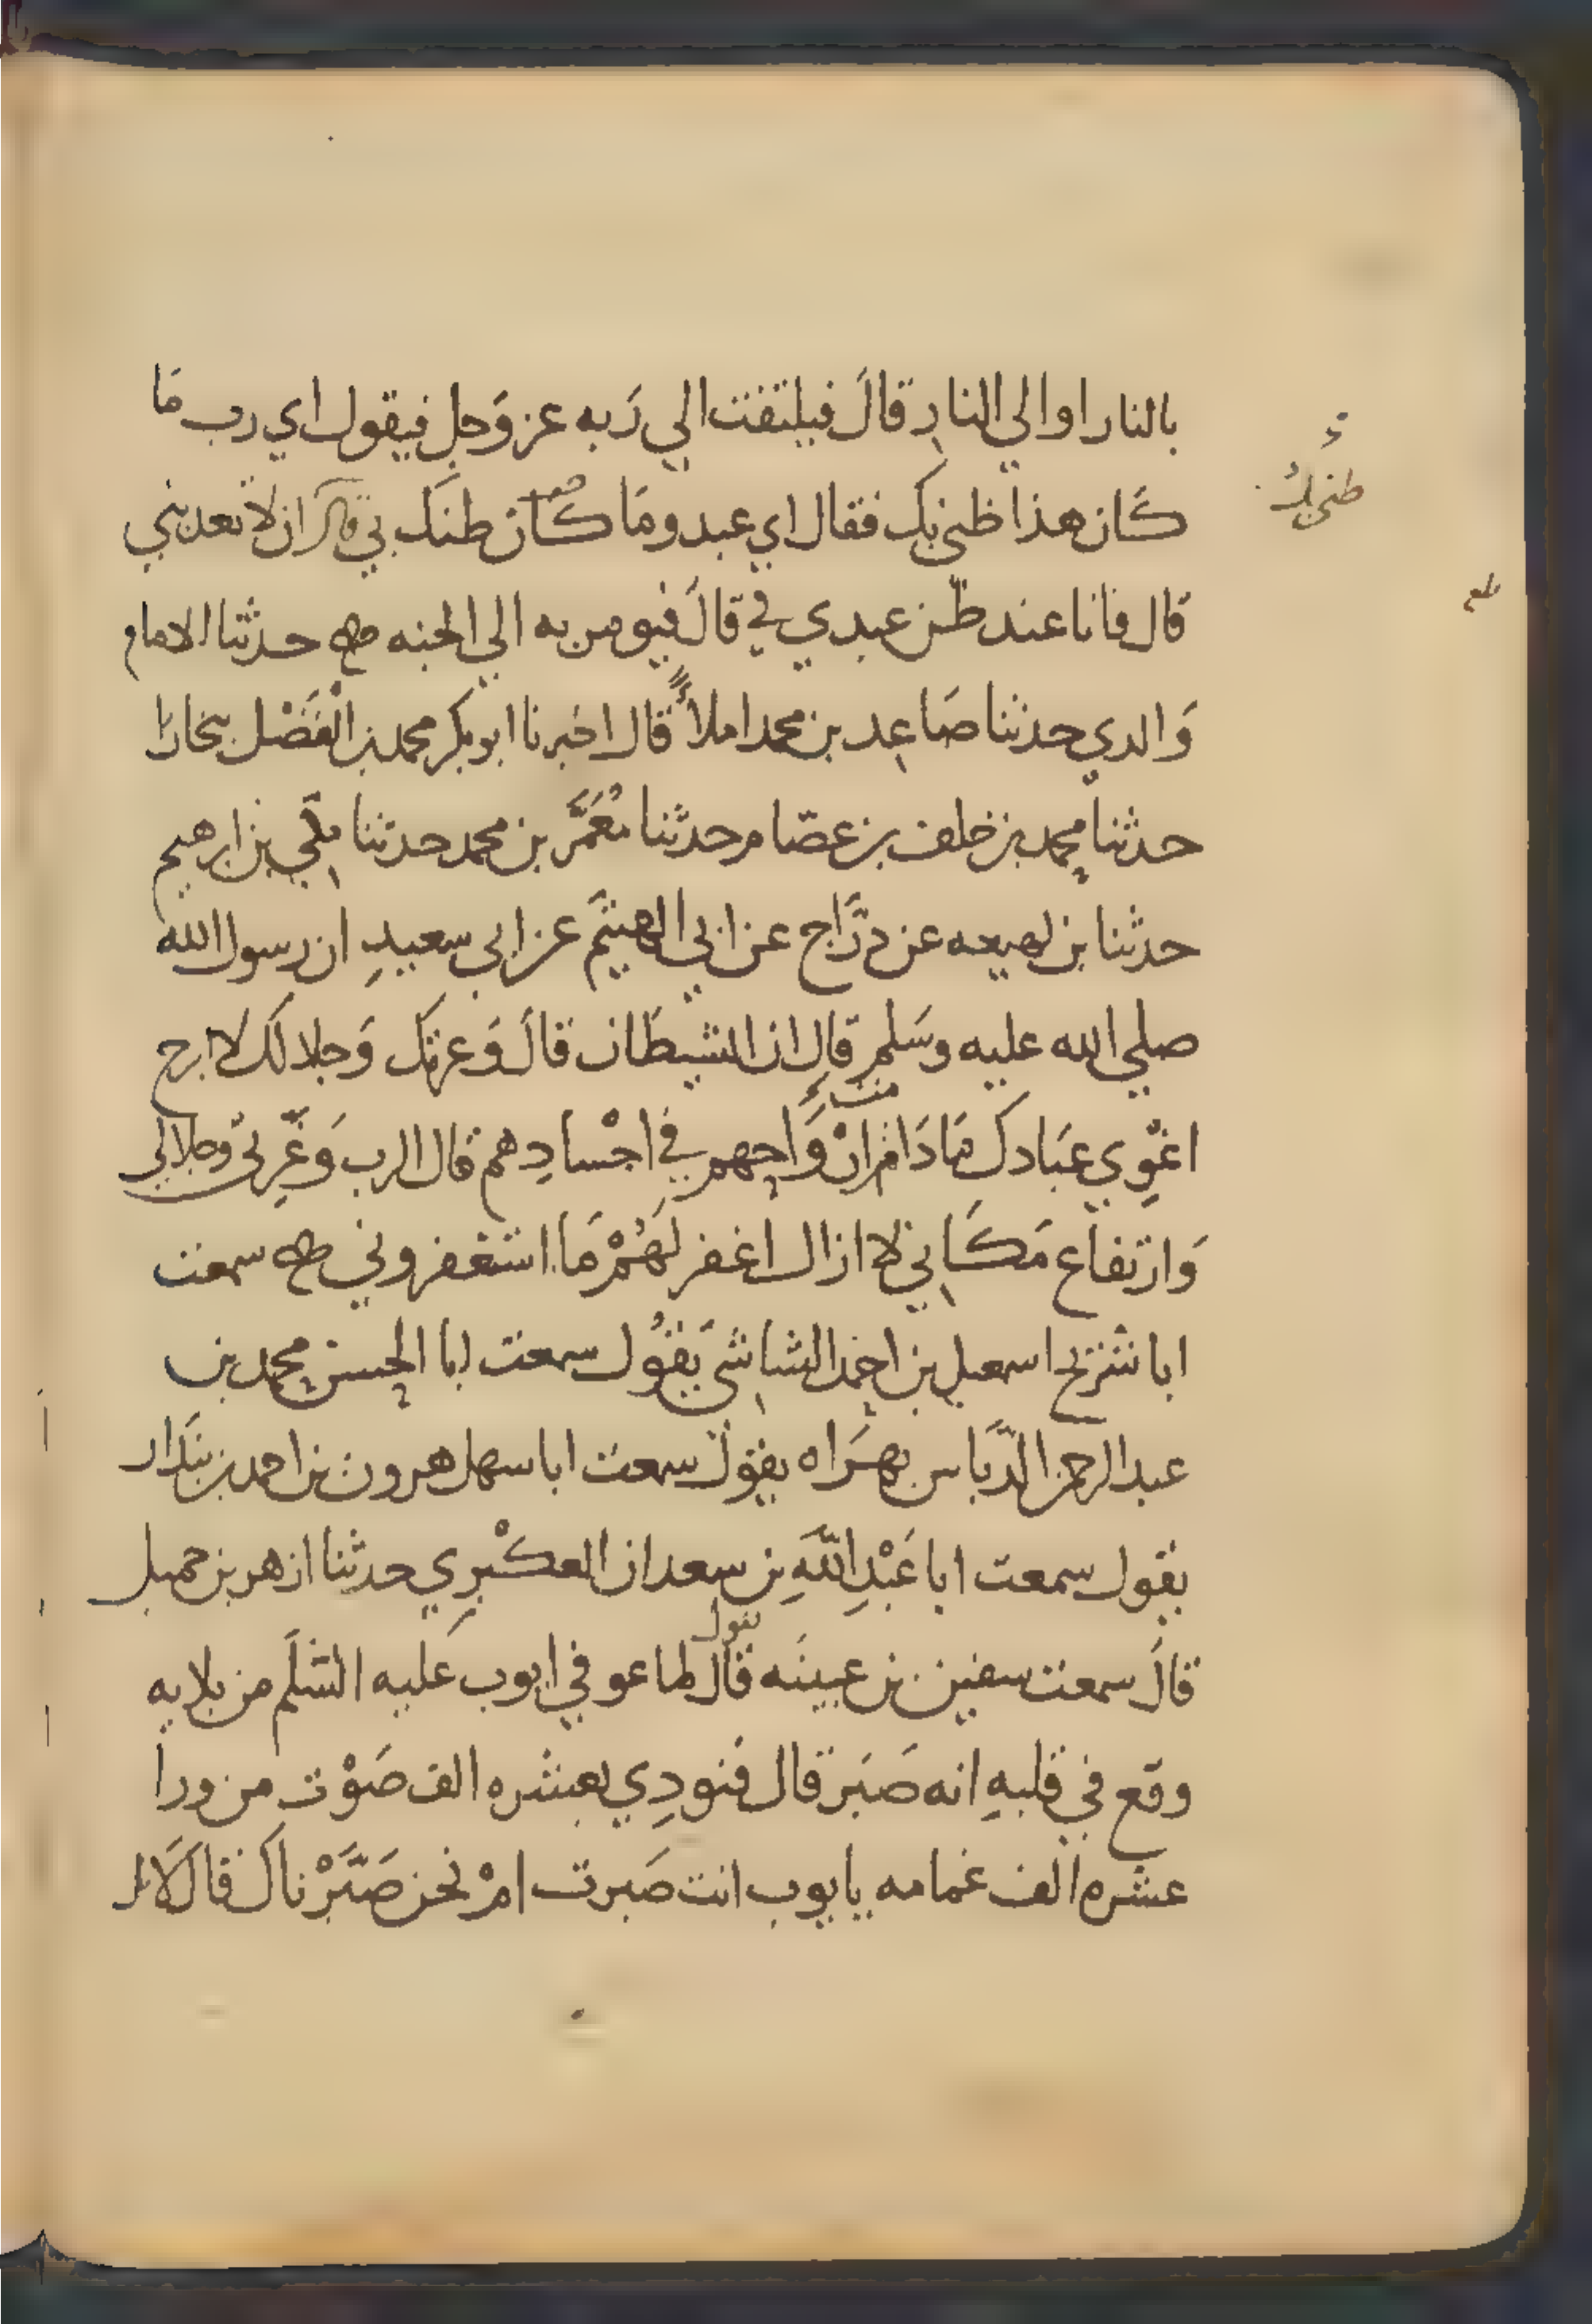 بالنار او الي النار قالَ فيلتفت الي رَبه عز وَجل فيقول اي رب مَا
كَان هذا ظني بك فقال اي عبد ومَا كَان ظنك بي قال ان لا تعدبني
قال فانا عند ظن عبدي بي قالَ فيومر به الي الجنه صح حدثنا الامام
وَالدي حدثنا صَاعِد بن محمد املاءً قال اخبرنا ابو بكر محمد بن الْفَضْل ببخارَا
حدثنا محمد بن خلف بن عصّام حدثنا مُعَمَّر بن محمد حدثنا مكّي بن ابرهيم
حدثنا بن لهيعه عن درَّاج عن ابي الهيثَم عن ابي سعيدٍ ان رسول الله
صلي الله عليه وسَلم قال ان الشيطَان قالَ وَعزتك وَجلالك لا ابرح
اغْوِي عبَادك مَا دَامَتْ ارْوَاحهم في اجْسادِهم قال الرب وَعِزتي وجلالي
وَارتفاع مَكَاني لا ازال اغفر لهُمْ مَا استغفروني صح سمعت
ابا شُرَيح اسمعيل بن احمد الشاشي يَقُول سمعت ابا الحسن محمد بن
عبد الرحمن الدَّبَّاس بهَرَاه يقول سمعت ابا سهل هرون بن احمد بن بندَار
يقول سمعت ابا عَبْدِ اللهِ بن سعدان العكْبرِي حدثنا ازهر بن جميل
قالَ سمعت سفين بن عيينَه قال يقول لما عوفي ايوب عَليه السَّلَم من بلايه
وقع في قلبهِ انه صَبَر قال فنودِي بعشره الف صَوْت من ورا
عشره الف غمامه يا يوب انت صَبرت امْ نحن صَبَّرْناك فقالَ لَا بل
ظني بكَ